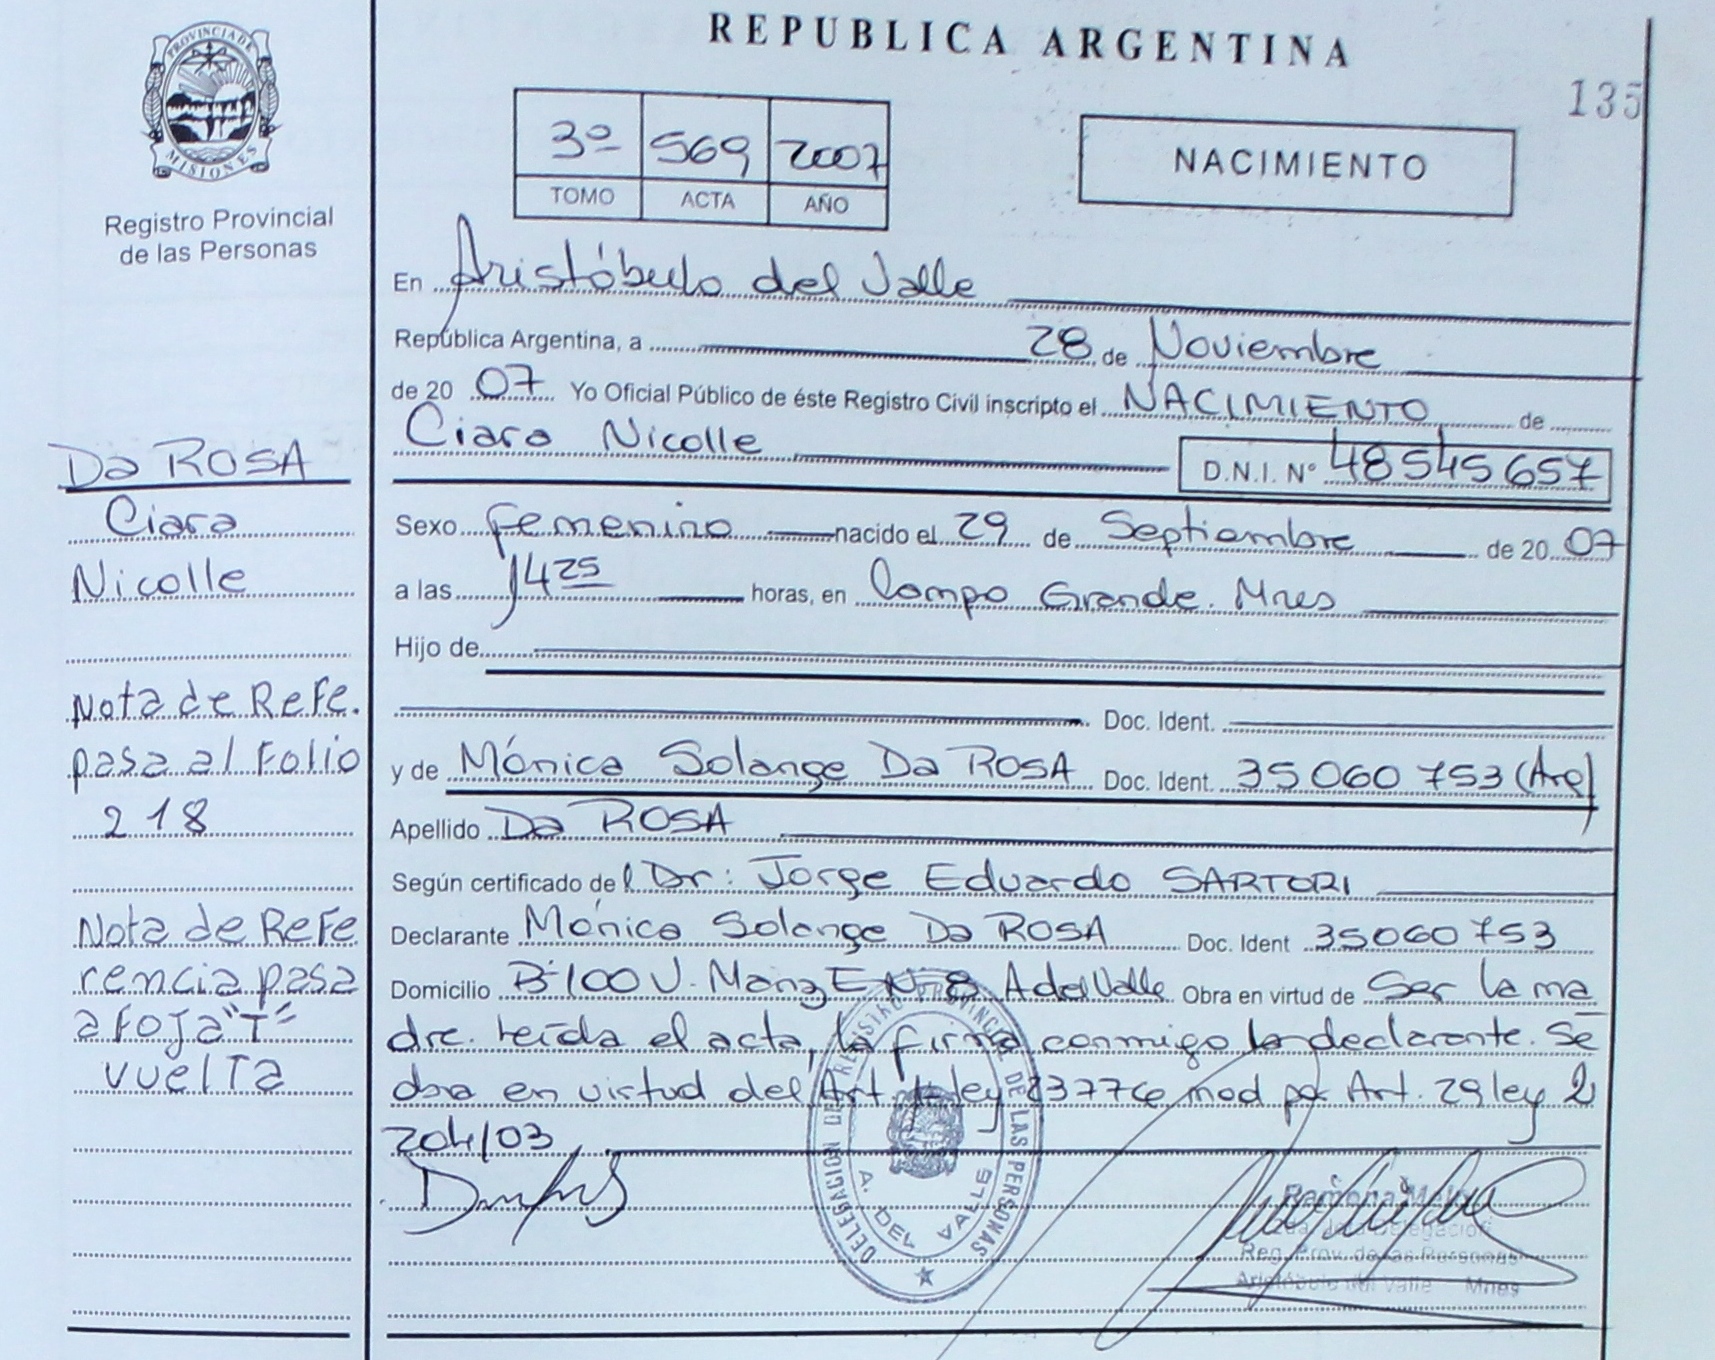 REPUBLICA ARGENTINA
135
PROVINCIA DE MISIONES
Registro Provincial
de las Personas
3º 569 2007
TOMO ACTA AÑO
NACIMIENTO
En Aristóbulo del Valle
República Argentina, a 28 de Noviembre
de 20 07 Yo Oficial Público de éste Registro Civil inscripto el NACIMIENTO de
Ciara Nicolle D.N.I. Nº 48545657
Sexo femenino nacido el 29 de Septiembre de 20 07
a las 14 25 horas, en Campo Grande. Mnes
Hijo de
Doc. Ident.
y de Mónica Solange Da ROSA Doc. Ident. 35060753 (Arg)
Apellido Da ROSA
Según certificado de l Dr: Jorge Eduardo SARTORI
Declarante Mónica Solange Da ROSA Doc. Ident 35060753
Domicilio Bº 100 V. Manz E Nº 8 A del Valle Obra en virtud de Ser la ma
dre. leída el acta, la firma conmigo la declarante. Se
obra en virtud del Art. ley 23776 mod por Art. 29 ley 2
204/03
Da ROSA
Ciara
Nicolle
Nota de Refe.
pasa al Folio
218
Nota de Refe
rencia pasa
a foja "T"
vuelta
DELEGACION DEL REGISTRO PROVINCIAL DE LAS PERSONAS
A. DEL VALLE
Ramona
Delegación
Reg. Prov. de las Personas
Aristóbulo del Valle Mnes